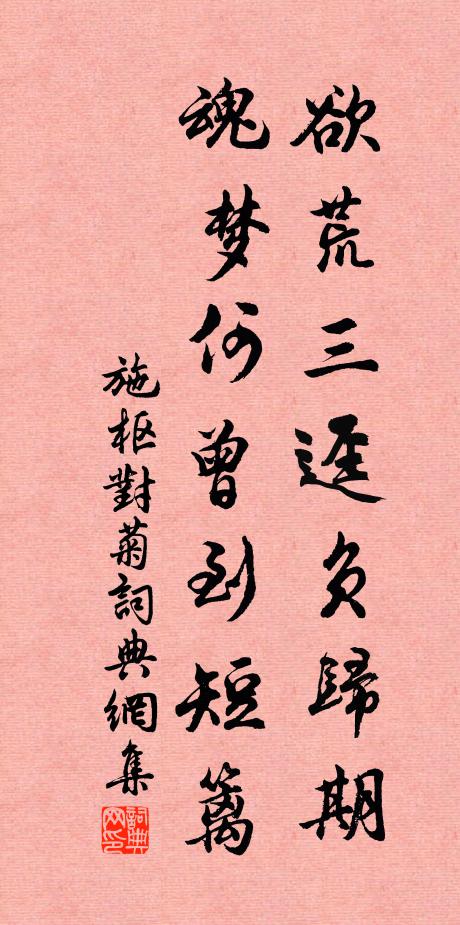 欲荒三逕负歸期
魂梦何曾到短籬
施枢對菊詞典網集
詞典网印